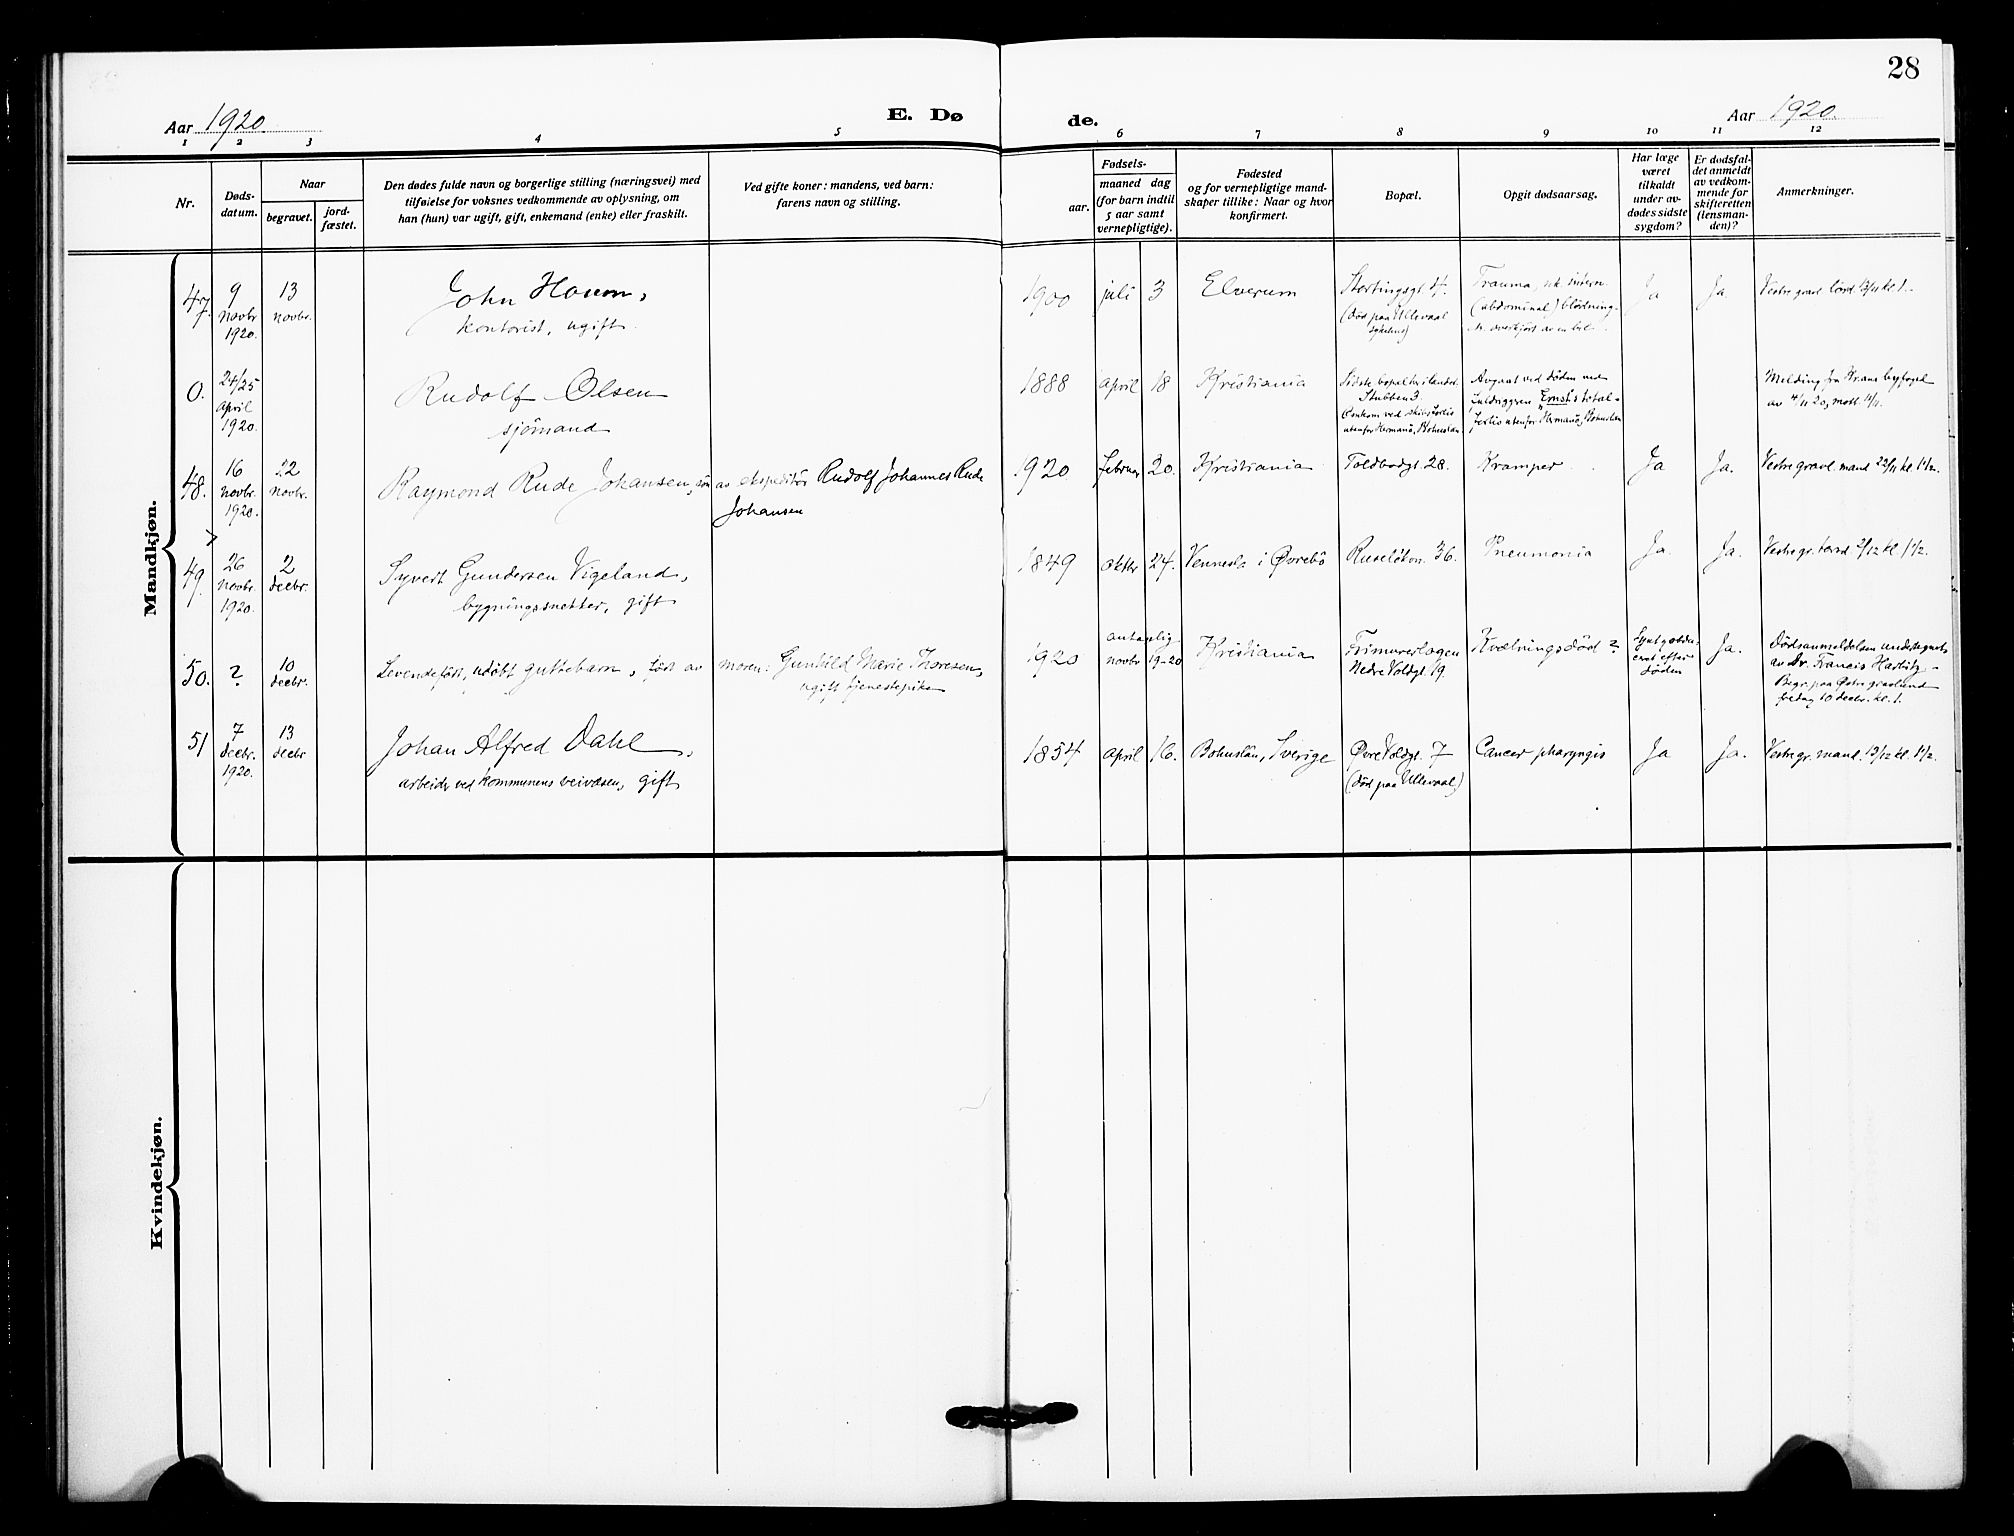 28
Aar 1920
E. Dø de.
Aar 1920.
1 2 3 4 5 6 7 8 9 10 11 12
Nr.
Døds-
datum.
Naar
begravet.
jord-
fæstet.
Den dødes fulde navn og borgerlige stilling (næringsvei) med
tilføielse for voksnes vedkommende av oplysning, om
han (hun) var ugift, gift, enkemand (enke) eller fraskilt.
Ved gifte koner: mandens, ved barn:
farens navn og stilling.
Fødsels-
aar.
maaned dag
(for barn indtil
5 aar samt
vernepligtige).
Fødested
og for vernepligtige mand-
skaper tillike: Naar og hvor
konfirmert.
Bopæl.
Opgit dødsaarsag.
Har læge
været
tilkaldt
under av-
dødes sidste
sygdom?
Er dødsfal-
det anmeldt
av vedkom-
mende for
skifteretten
(lensman-
den)?
Anmerkninger.
Mandkjøn.
47.
9
novbr
1920.
13
novbr.
John
kontorist, ugift.
1900
juli
3
Elverum
Stortingsgt. 4.
(død paa Ullevaal
sykehus)
Trauma, intern
(abdominal) blødning
overkjørt av en bil.
Ja
Ja.
Vestre grav. lørd. 13/11 kl 1.
0.
24/25
april
1920.
Rudolf Olsen
sjömand
1888
april
18
Kristiania
Sidste bopæl her i landet
Stubben 3.
Omkom ved skibsforlis
utenfor Hermanö, Bohuslän.
Avgaat ved døden ved
Ernst's total-
forlis utenfor Hermanö, Bohuslän
Melding fra Kr.ania byfoged
av 4/11 20, mott.
48.
16
novbr.
1920.
22
novbr.
Raymond Rude Johansen, sön av ekspeditör Rudolf Johannes Rude
Johansen
1920
februar
20.
Kristiania
Toldbodgt. 28.
Kramper
Ja
Ja.
Vestre gravl. mand 22/11 kl. 1 1/2.
49.
26
novbr.
1920.
2
decbr.
Syvert Gundersen Vigeland,
bygningssnekker, gift
1849
oktbr
24.
Vennesla i Øvrebö
Ruseløkvn. 36.
Pneumonia
Ja.
Ja.
Vestre gr. torsd 2/12 kl 1 1/2.
50.
?
10
decbr.
Levendefödt, udöbt guttebarn, födt av moren: Gunhild Marie Thoresen,
ugift tjenestepike
1920
antagelig
novbr
19-20
Kristiania
Frimurerlogen
Nedre Voldgt. 19.
Kvælningsdød?
Synt
efter
døden
Ja.
Dødsanmeldelsen undertegnet
av Dr. Francis Harbitz.
Begr. paa Østre gravlund
fredag 10 decbr. kl. 1.
51
7
decbr.
1920.
13
decbr
Johan Alfred Dahl,
arbeider ved kommunens veivæsen, gift
1854
april
16.
Bohuslän, Sverige
Øvre Voldgt. 7
(død paa Ullevaal)
Cancer pharyngis
Ja
Ja.
Vestre gr. mand. 13/12 kl. 1 1/2.
Kvindekjøn.